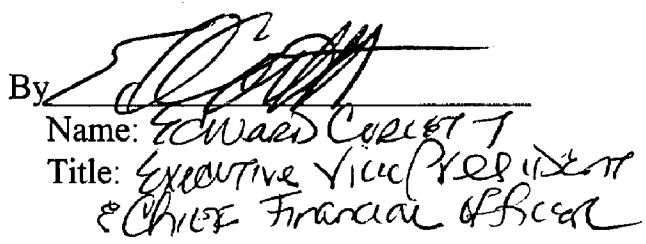 By
Name: EDWARD CORLETT
Title: Executive Vice President
& Chief Financial Officer